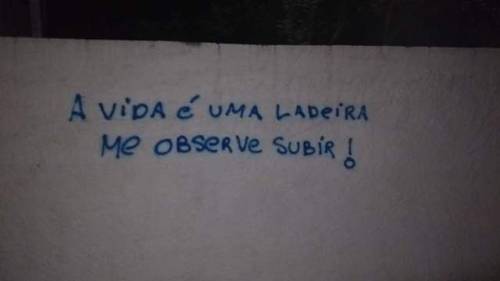 A ViDA é UMA LADeiRA
Me OBSeRVe SUBiR!